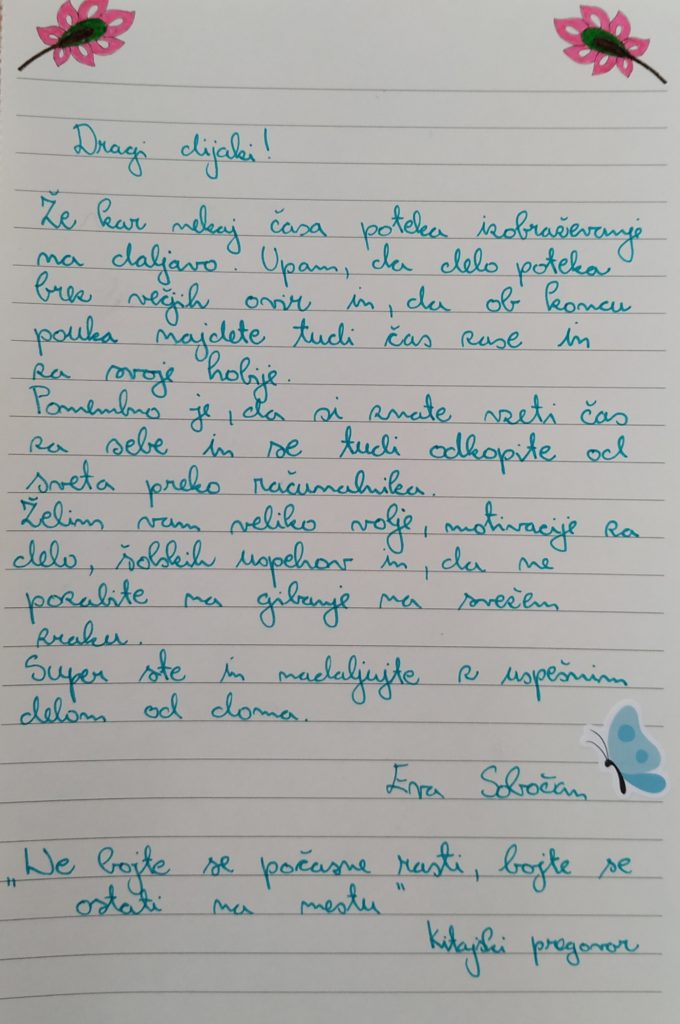 Dragi dijaki!
Že kar nekaj časa poteka izobraževanje
na daljavo. Upam, da delo poteka
brez večjih ovir in, da ob koncu
pouka najdete tudi čas zase in
za svoje hobije.
Pomembno je, da si znate vzeti čas
za sebe in se tudi odkopite od
sveta preko računalnika.
Želim vam veliko volje, motivacije za
delo, šolskih uspehov in, da ne
pozabite na gibanje na svežem
zraku.
Super ste in nadaljujte z uspešnim
delom od doma.
Eva Sobočan
„Ne bojte se počasne rasti, bojte se
ostati na mestu“
Kitajski pregovor